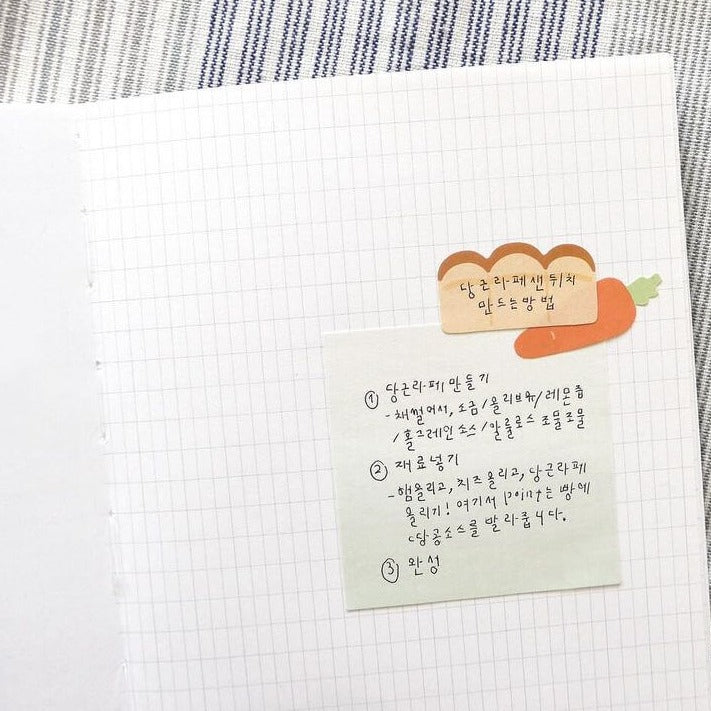 당근라페샌뒤치
만드는방법
① 당근라페 만들기
- 채썰어서, 소금/올리브유/레몬즙
/홀그레인소스/알룰로스 조물조물
② 재료넣기
- 햄올리고, 치즈올리고, 당근라페
올리기! 여기서 point는 빵에
땅콩소스를 발라줍니다.
③ 완성